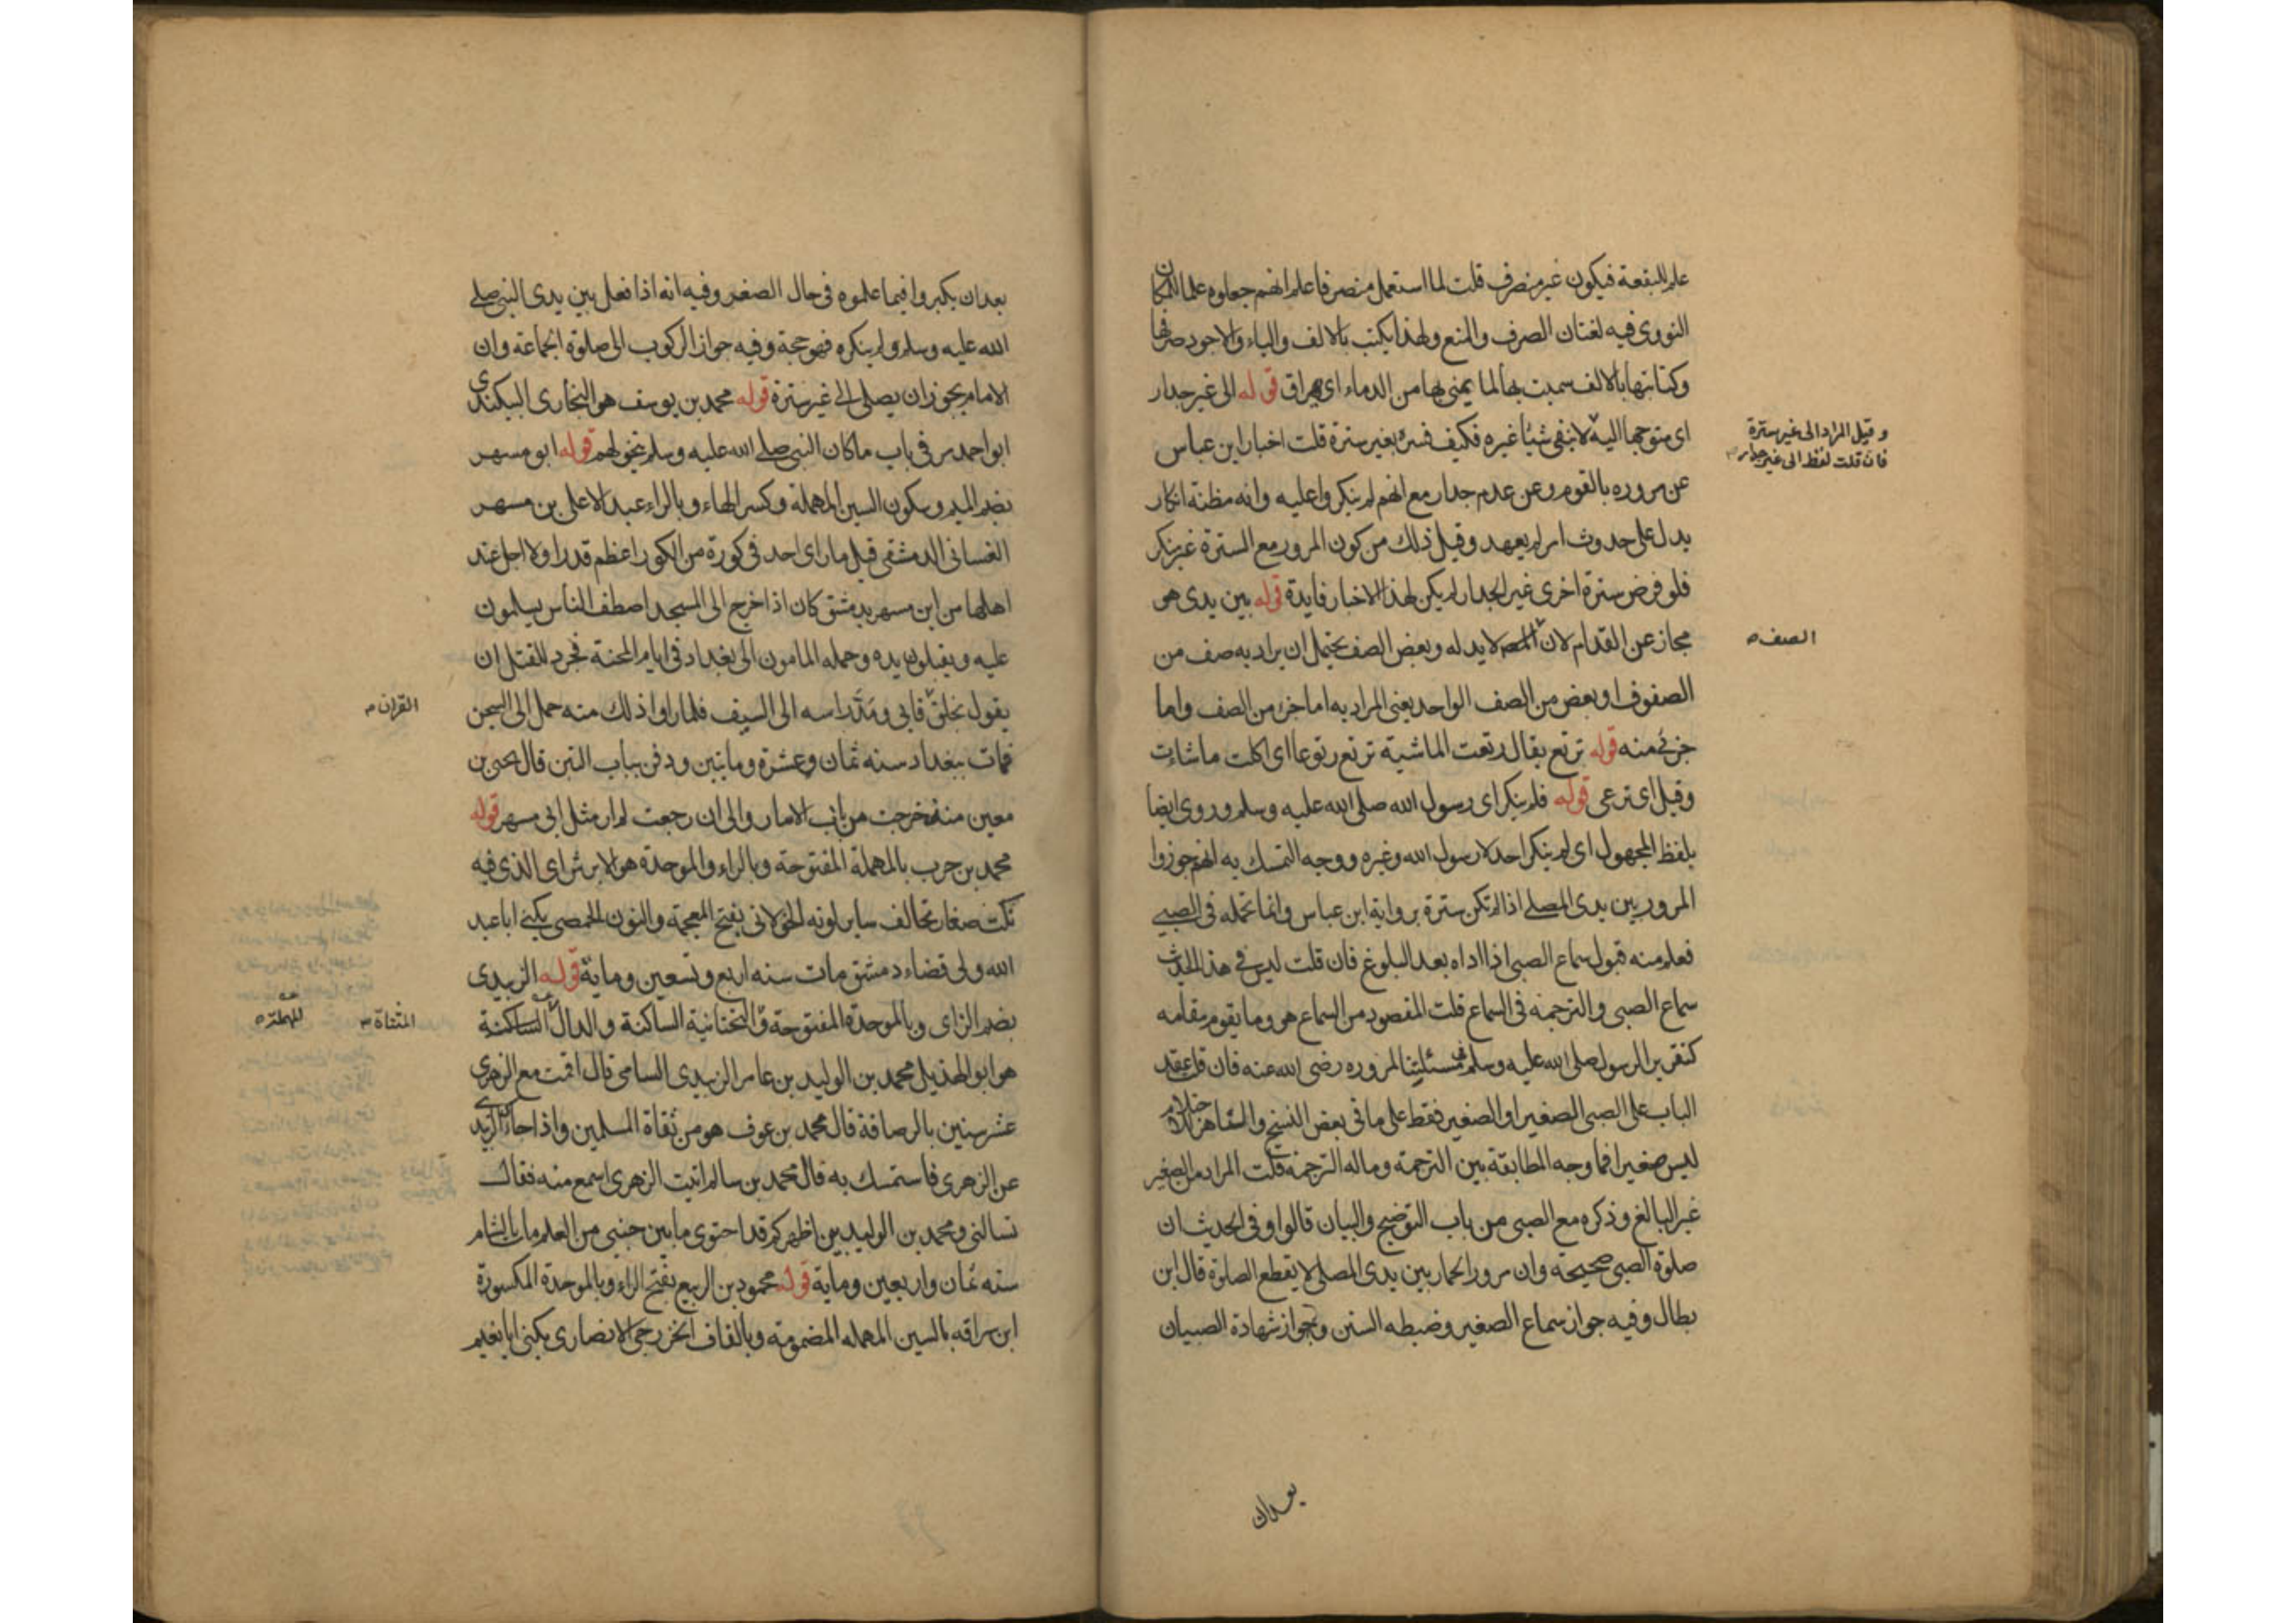 علم للبقعة فيكون غير منصرف قلت لما استعمل منصرفا علم انهم جعلوه علما للمكان
النووى فيه لغتان الصرف والمنع ولهذا يكتب بالالف والياء والاجود صرفها
وكتابتها بالالف سميت بها لما يمنى بها من الدماء اى يهراق قوله الى غير جدار
اى متوجها اليه لا ينفى شيئا غيره فكيف فسره بغير سترة قلت اخبار ابن عباس
وقيل المراد الى غير سترة
فان قلت لفظ الى غير جدار
عن مروره بالقوم وعن عدم جدار مع انهم لم ينكروا عليه وانه مظنة انكار
يدل على حدوث امر لم يعهد وقيل ذلك من كون المرور مع السترة غير منكر
فلو فرض سترة اخرى غير الجدار لم يكن لهذا الاخبار فايدة قوله بين يدى هو
مجاز عن القدام لان لا يد له وبعض الصف يحتمل ان يراد به صف من
الصف
الصفوف او بعض من الصف الواحد يعنى المراد به اما جزء من الصف واما
جزئ منه قوله ترتع يقال رتعت الماشية ترتع رتوعا اى اكلت ما شاءت
وقيل اى ترعى قوله فلم ينكر اى رسول الله صلى الله عليه وسلم وروى ايضا
بلفظ المجهول اى لم ينكر احد لا رسول الله وغيره ووجه التمسك به انهم جوزوا
المرور بين يدى المصلے اذا لم تكن سترة برواية ابن عباس وانما تحمله فى الصبے
فعلم منه قبول سماع الصبى اذا اداه بعد البلوغ فان قلت ليس فے هذا الحديث
سماع الصبى والترجمة فى السماع قلت المقصود من السماع هو وما يقوم مقامه
كتقرير الرسول صلى الله عليه وسلم فى مسئلتنا لمروره رضى الله عنه فان قلت عقد
الباب على الصبى الصغير او الصغير فقط على ما فى بعض النسخ والمناهز للاحتلام
ليس صغيرا فما وجه المطابقة بين الترجمة وماله الترجمة قلت المراد من الصغير
غير البالغ وذكره مع الصبى من باب التوضيح والبيان قالوا وفى الحديث ان
صلوة الصبى صحيحة وان مرور الحمار بين يدى المصلى لا يقطع الصلوة قال ابن
بطال وفيه جواز سماع الصغير وضبطه السنن وجواز شهادة الصبيان
بعد ان
بعد ان يكبروا فيما علموه فى حال الصغر وفيه انه اذا فعل بين يدى النبى صلے
الله عليه وسلم ولم ينكره فهو حجة وفيه جواز الركوب الى صلوة الجماعة وان
الامام يجوز ان يصلى الى غير سترة قوله محمد بن يوسف هو البخارى البيكندى
ابو احمد مر فى باب ما كان النبى صلے الله عليه وسلم يتخولهم قوله ابو مسهر
بضم الميم وسكون السين المهملة وكسر الهاء وبالراء عبد الاعلى بن مسهر
الغسانى الدمشقى قيل ما راى احد فى كورة من الكور اعظم قدرا ولا اجل عند
اهلها من ابن مسهر بدمشق كان اذا خرج الى المسجد اصطف الناس يسلمون
عليه ويقبلون يده وحمله المامون الى بغداد فى ايام المحنة فجرد للقتل ان
يقول بخلق فابى ومد راسه الى السيف فلما راوا ذلك منه حمل الى السجن
القران
فمات ببغداد سنه ثمان وعشرة ومايتين ودفن بباب التبن قال يحيى بن
معين منذ خرجت من باب الانبار والى ان رجعت لم ار مثل ابى مسهر قوله
محمد بن حرب بالمهملة المفتوحة وبالراء والموحدة هو الابرش اى الذى فيه
نكت صغار تخالف ساير لونه الخولانى بفتح المعجمة والنون الحمصى يكنى ابا عبد
الله ولى قضاء دمشق مات سنه اربع وتسعين وماية قوله الزبيدى
بضم الزاى وبالموحدة المفتوحة والتحتانية الساكنة والدال الساكنة
المثناة
المهملة
هو ابو الهذيل محمد بن الوليد بن عامر الزبيدى الشامى قال اقمت مع الزهرى
عشر سنين بالرصافة قال محمد بن عوف هو من ثقاة المسلمين واذا جاءك الزبيدى
عن الزهرى فاستمسك به قال محمد بن سالم اتيت الزهرى اسمع منه فقال
تسالنى ومحمد بن الوليد بين اظهركم قد احتوى ما بين جنبى من العلم مات بالشام
سنه ثمان واربعين وماية قوله محمود بن الربيع بفتح الراء وبالموحدة المكسورة
ابن سراقه بالسين المهمله المضمومة وبالقاف الخزرجى الانصارى يكنى ابا نعيم